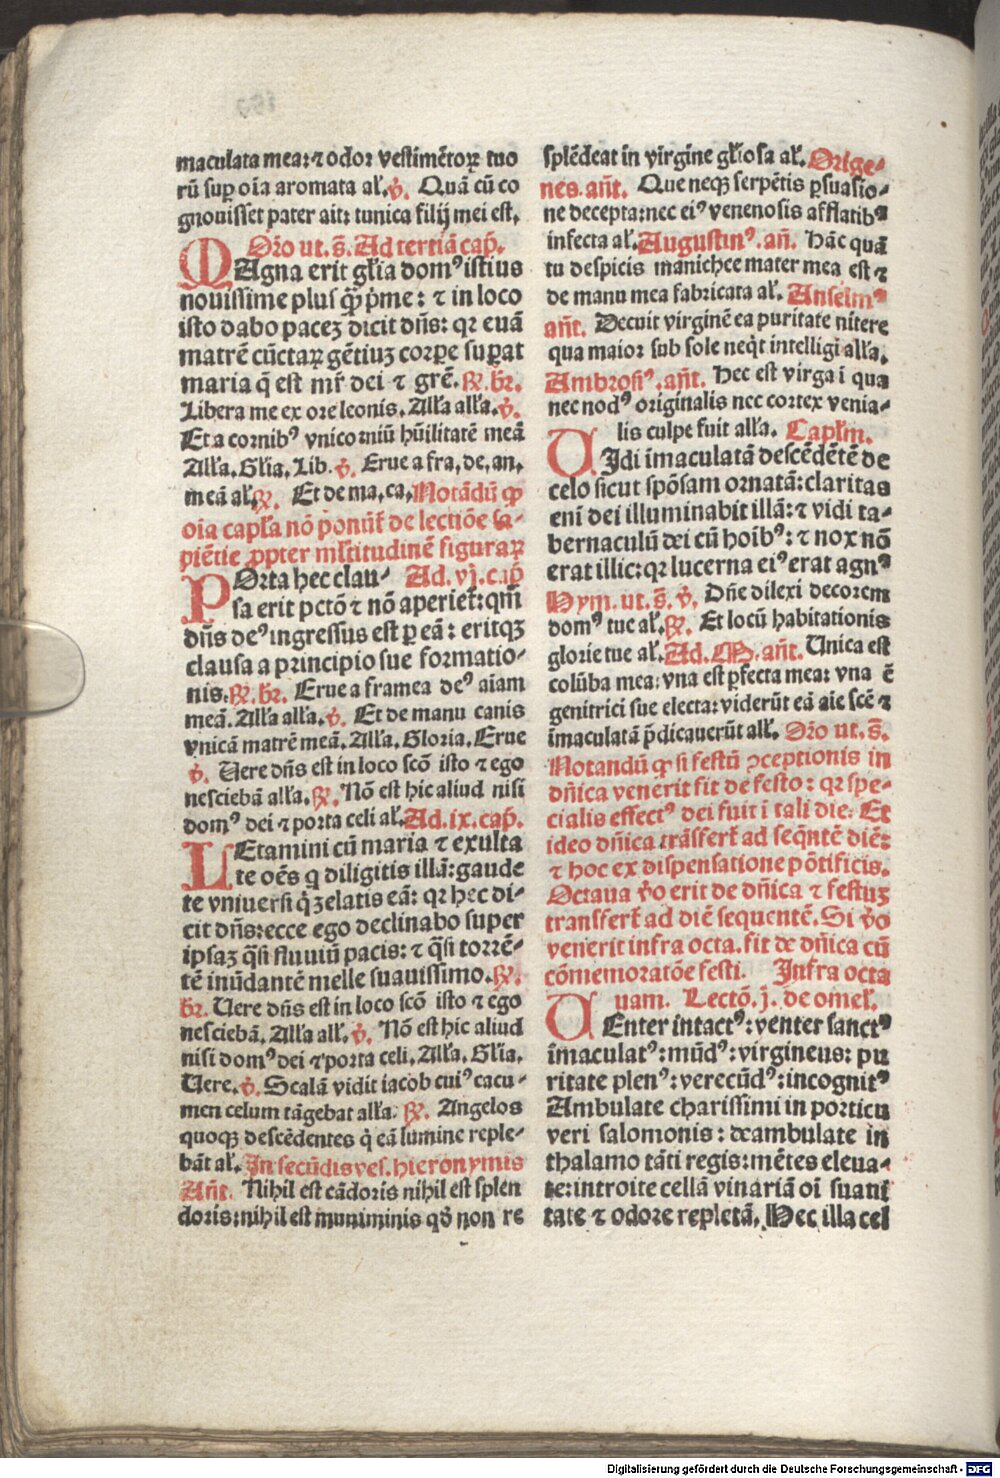 maculata mea: ⁊ odor vestimētoꝝ tuo
rū suꝑ oīa aromata al̄. ℣. Quā cū co
gnouisset pater ait: tunica filij mei est.
Oro ut. s̄. Ad tertiā cap̄.
MAgna erit gl̄ia domꝰ istius
nouissime plus q̄ꝫ p̄me: ⁊ in loco
isto dabo paceꝫ dicit dn̄s: qꝛ euā
matrē cūctaꝝ gētiuꝫ corꝑe suꝑat
maria q̄ est mr̄ dei ⁊ grē. ℟. br̄.
Libera me ex ore leonis. All'a all'a. ℣.
Et a cornibꝰ vnicorniū hūilitatē meā
All'a. Gl'ia. Lib. ℣. Erue a fra, de, an,
meā al̄. ℟. Et de ma, ca, Notādū ꝙ
oīa capl'a nō ponūt̄ de lectiōe sa-
piētie ꝓpter ml̄titudinē figuraꝝ
POrta hec clau- Ad. vj. cap̄
sa erit pctō ⁊ nō aperiet̄: qm̄
dn̄s deꝰ ingressus est ꝑ eā: eritqꝫ
clausa a principio sue formatio-
nis. ℟. br̄. Erue a framea deꝰ aīam
meā. All'a all'a. ℣. Et de manu canis
vnicā matrē meā. All'a. Gloria. Erue
℣. Uere dn̄s est in loco scō isto ⁊ ego
nesciebā all'a. ℟. Nō est hic aliud nisi
domꝰ dei ⁊ porta celi al̄. Ad. ix. cap̄.
LEtamini cū maria ⁊ exulta
te oēs q diligitis illā: gaude
te vniuersi q̄ zelatis eā: qꝛ hec di-
cit dn̄s: ecce ego declinabo super
ipsaꝫ q̄si fluuiū pacis: ⁊ q̄si torrē-
tē inūdantē melle suauissimo. ℟.
br̄. Uere dn̄s est in loco scō isto ⁊ ego
nesciebā. All'a all'. ℣. Nō est hic aliud
nisi domꝰ dei ⁊ porta celi. All'a. Gl'ia.
Uere. ℣. Scalā vidit iacob cuiꝰ cacu-
men celum tāgebat all'a. ℟. Angelos
quoqꝫ descēdentes q̄ eā lumine reple-
bāt al̄. In secūdis ves. hieronymis
Añt. Nihil est cādoris nihil est splen
doris: nihil est muniminis qd̄ non re
splēdeat in virgine gl̄iosa al̄. Orige-
nes. añt. Que neqꝫ serpētis ꝑsuasio-
ne decepta: nec eiꝰ venenosis afflatibꝰ
infecta al̄. Augustinꝰ. añ. Hāc quā
tu despicis manichee mater mea est ⁊
de manu mea fabricata al̄. Anselmꝰ
añt. Decuit virginē ea puritate nitere
qua maior sub sole neq̄t intelligi all'a.
Ambrosiꝰ. añt. Hec est virga ī qua
nec nodꝰ originalis nec cortex venia-
lis culpe fuit all'a. Capl'm.
UIdi īmaculatā descēdētē de
celo sicut spōsam ornatā: claritas
eni dei illuminabit illā: ⁊ vidi ta-
bernaculū dei cū hoibꝰ: ⁊ nox nō
erat illic: qꝛ lucerna eiꝰ erat agnꝰ
Hym. ut. s̄. ℣. Dn̄e dilexi decorem
domꝰ tue al̄. ℟. Et locū habitationis
glorie tue al̄. Ad. M. añt. Unica est
colūba mea: vna est ꝑfecta mea: vna ē
genitrici sue electa: viderūt eā aīe scē ⁊
īmaculatā p̄dicauerūt all'. Oro ut. s̄.
Notandū ꝙ si festū ꝯceptionis in
dn̄ica venerit fit de festo: qꝛ spe-
cialis effectꝰ dei fuit ī tali die. Et
ideo dn̄ica trāsfert̄ ad seq̄ntē diē:
⁊ hoc ex dispensatione pōtificis.
Octaua v̄o erit de dn̄ica ⁊ festuꝫ
transfert̄ ad diē sequentē. Si v̄o
venerit infra octa. fit de dn̄ica cū
cōmemoratōe festi. Infra octa
uam. Lectō. j. de omel'.
UEnter intactꝰ: venter sanctꝰ
īmaculatꝰ: mūdꝰ: virgineus: pu
ritate plenꝰ: verecūdꝰ: incognitꝰ
Ambulate charissimi in porticu
veri salomonis: deambulate in
thalamo tāti regis: mētes eleua-
te: introite cellā vinariā oī suaui
tate ⁊ odore repletā. Hec illa cel
Digitalisierung gefördert durch die Deutsche Forschungsgemeinschaft - DFG